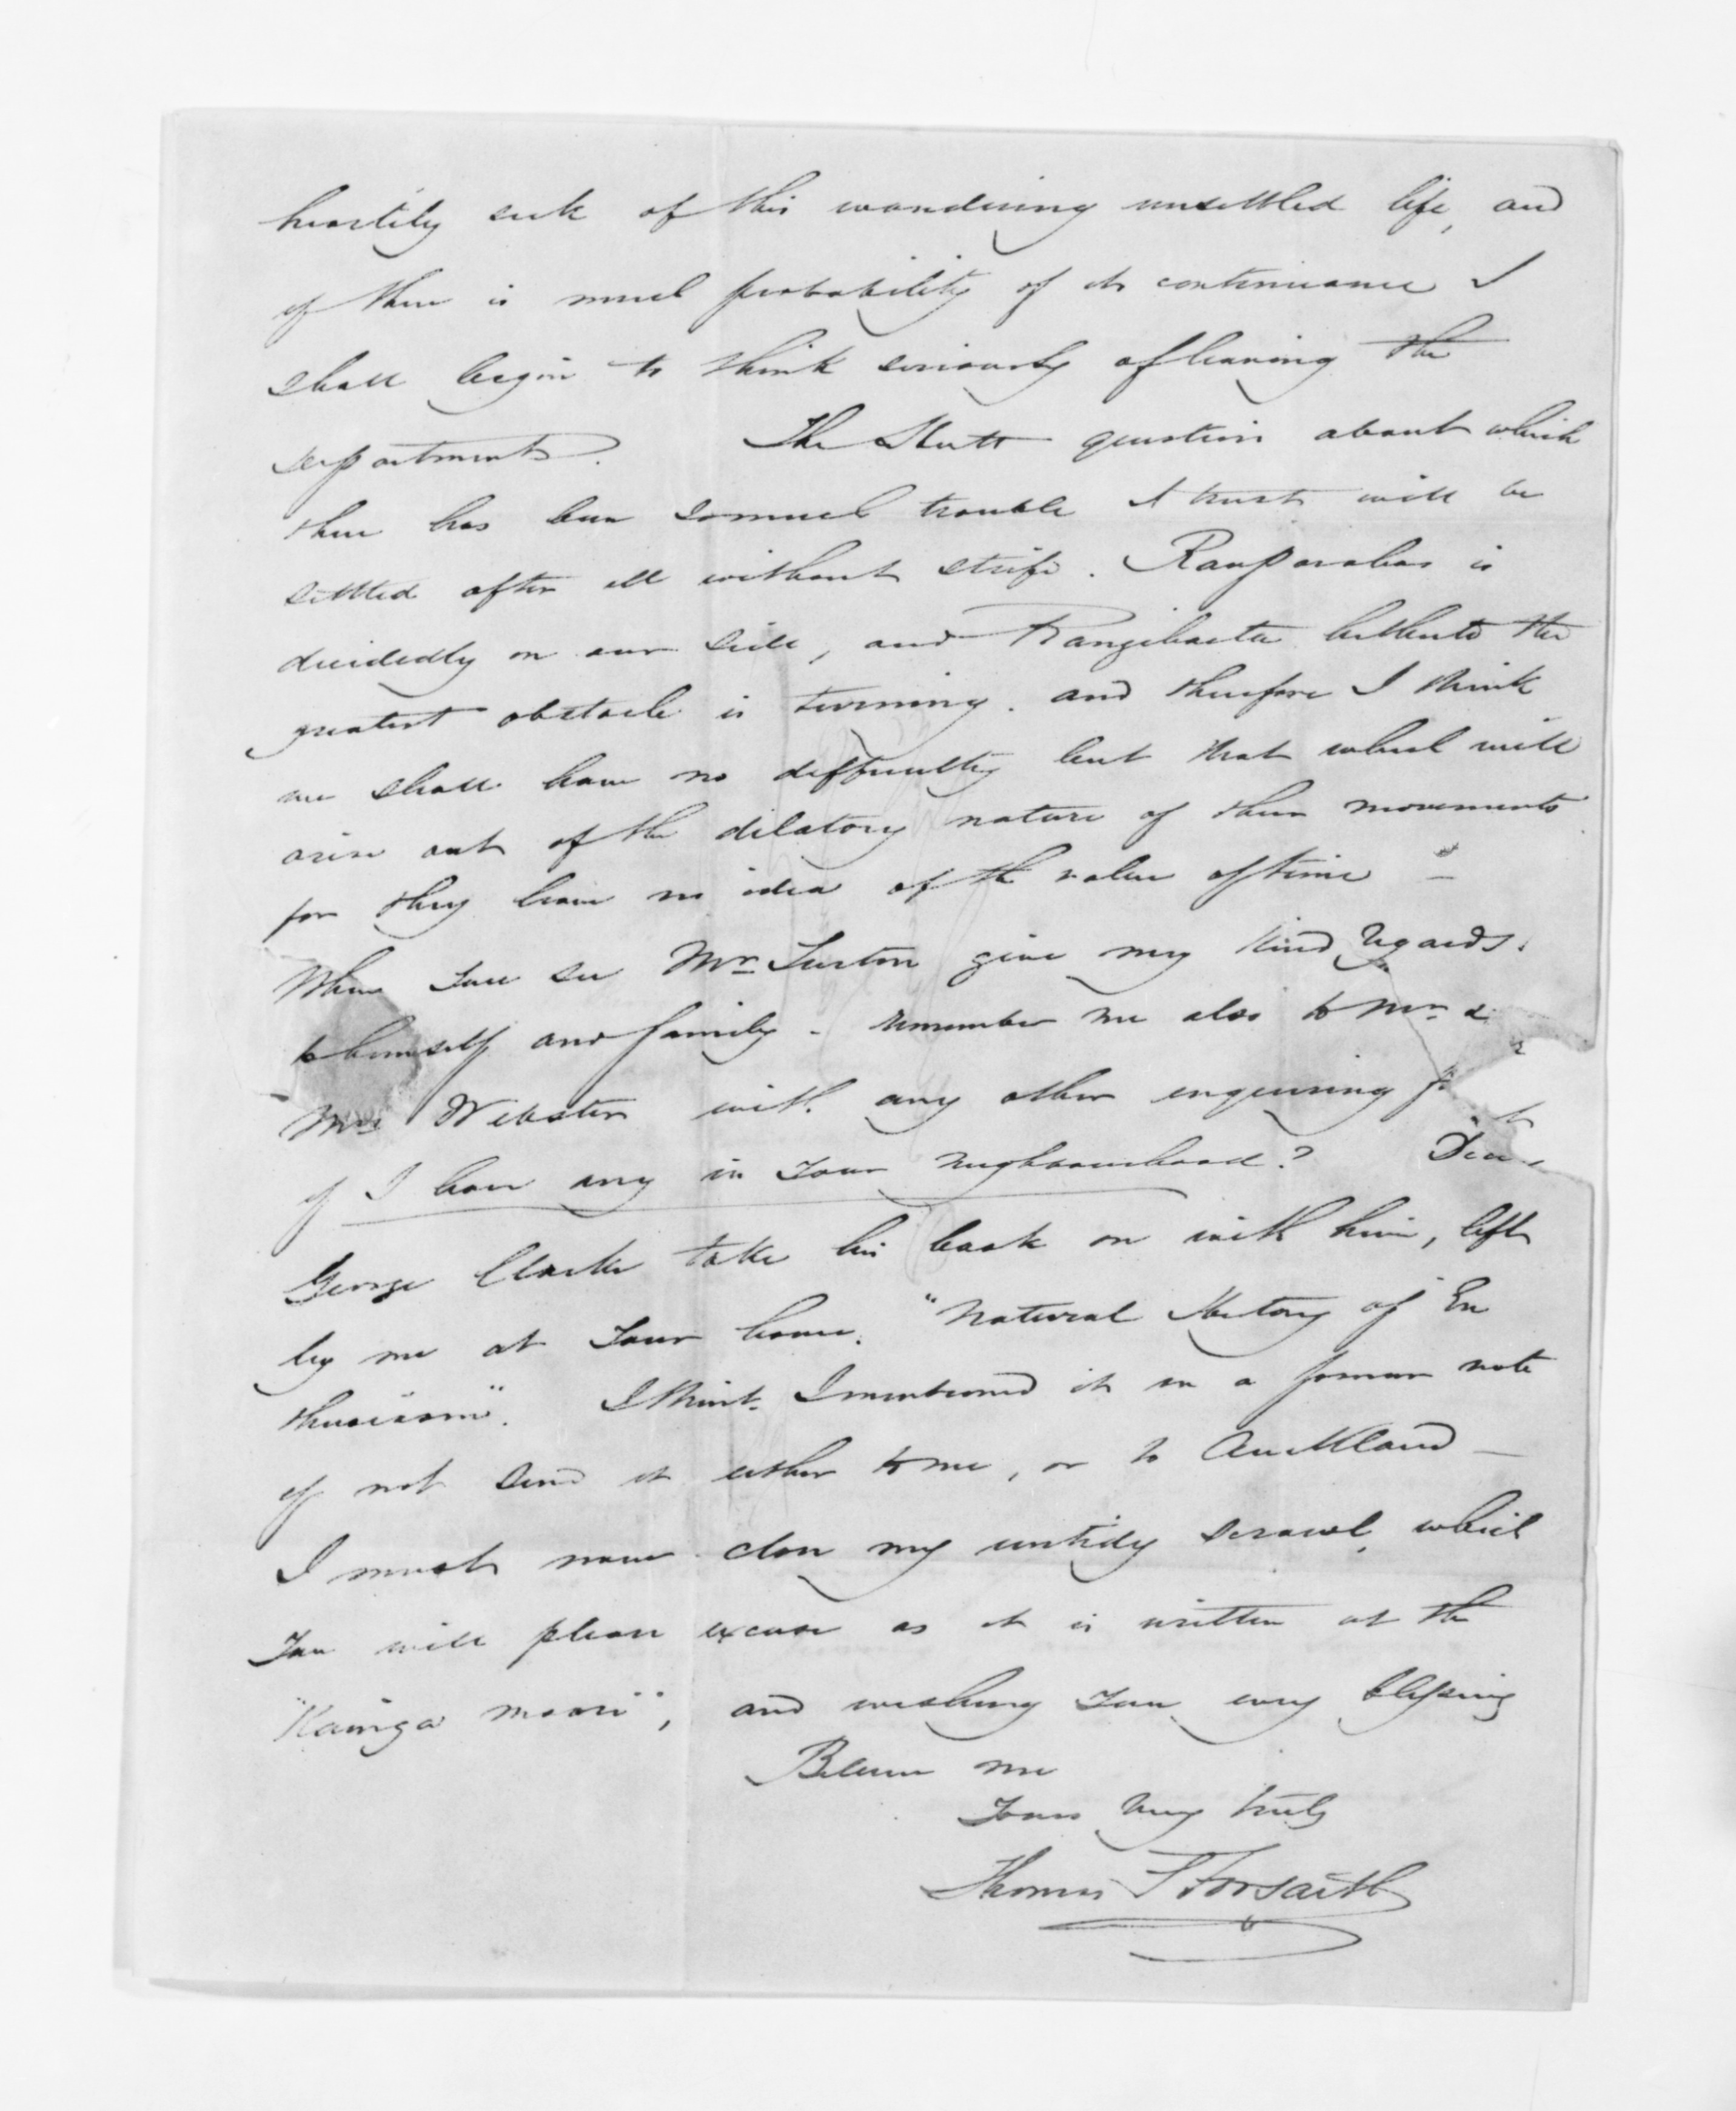 heartily sick of this wandering unsettled life, and
if there is much probability of its continuance I
shall begin to think seriously of leaving the
department. The Hutt question about which
there has been so much trouble I trust will be
settled after all without strife. Rauparaha is
decidedly on our side, and Rangihaeta hitherto the
greatest obstacle is turning. and therefore I think
we shall have no difficulty but that which will
arise out of the dilatory nature of their movements
for they have no idea of the value of time —
When you see Mr Turton give my kind regards.
to himself and family - remember me also to Mr &
Mrs Webster with any other enquiring
if I have any in your neighbourhood?
George Clarke take his book on with him, left
by me at your house. "Natural History of En
thusiasm". I think I mentioned it in a former note
if not send it either to me, or to Auckland —
I must now close my untidy scrawl, which
you will please excuse as it is written at the
"Kainga maori", and wishing you every blessing
Believe me
Yours very truly
Thomas S Forsaith